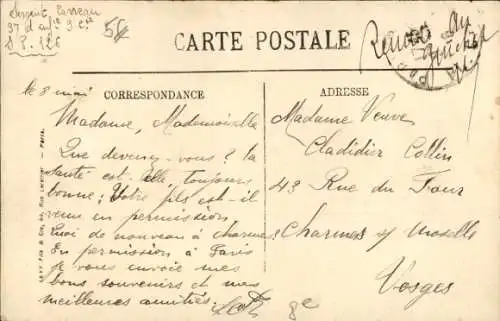 Sergent Carreau
37 d'inf^ie 9 C^ie
S.P. 126
54
CARTE POSTALE
Renvoi au
guichet
CORRESPONDANCE
ADRESSE
le 8 mai
Madame, Mademoiselle
Que devenez-vous? la
santé est-elle toujours
bonne; Votre fils est-il
venu en permission
Quoi de nouveau à charmes.
En permission à Paris
je vous envoie mes
bons souvenirs et mes
meilleures amitiés.
Madame Veuve
Cladidier Collin
43 Rue du Four
Charmes s/ Moselle
Vosges